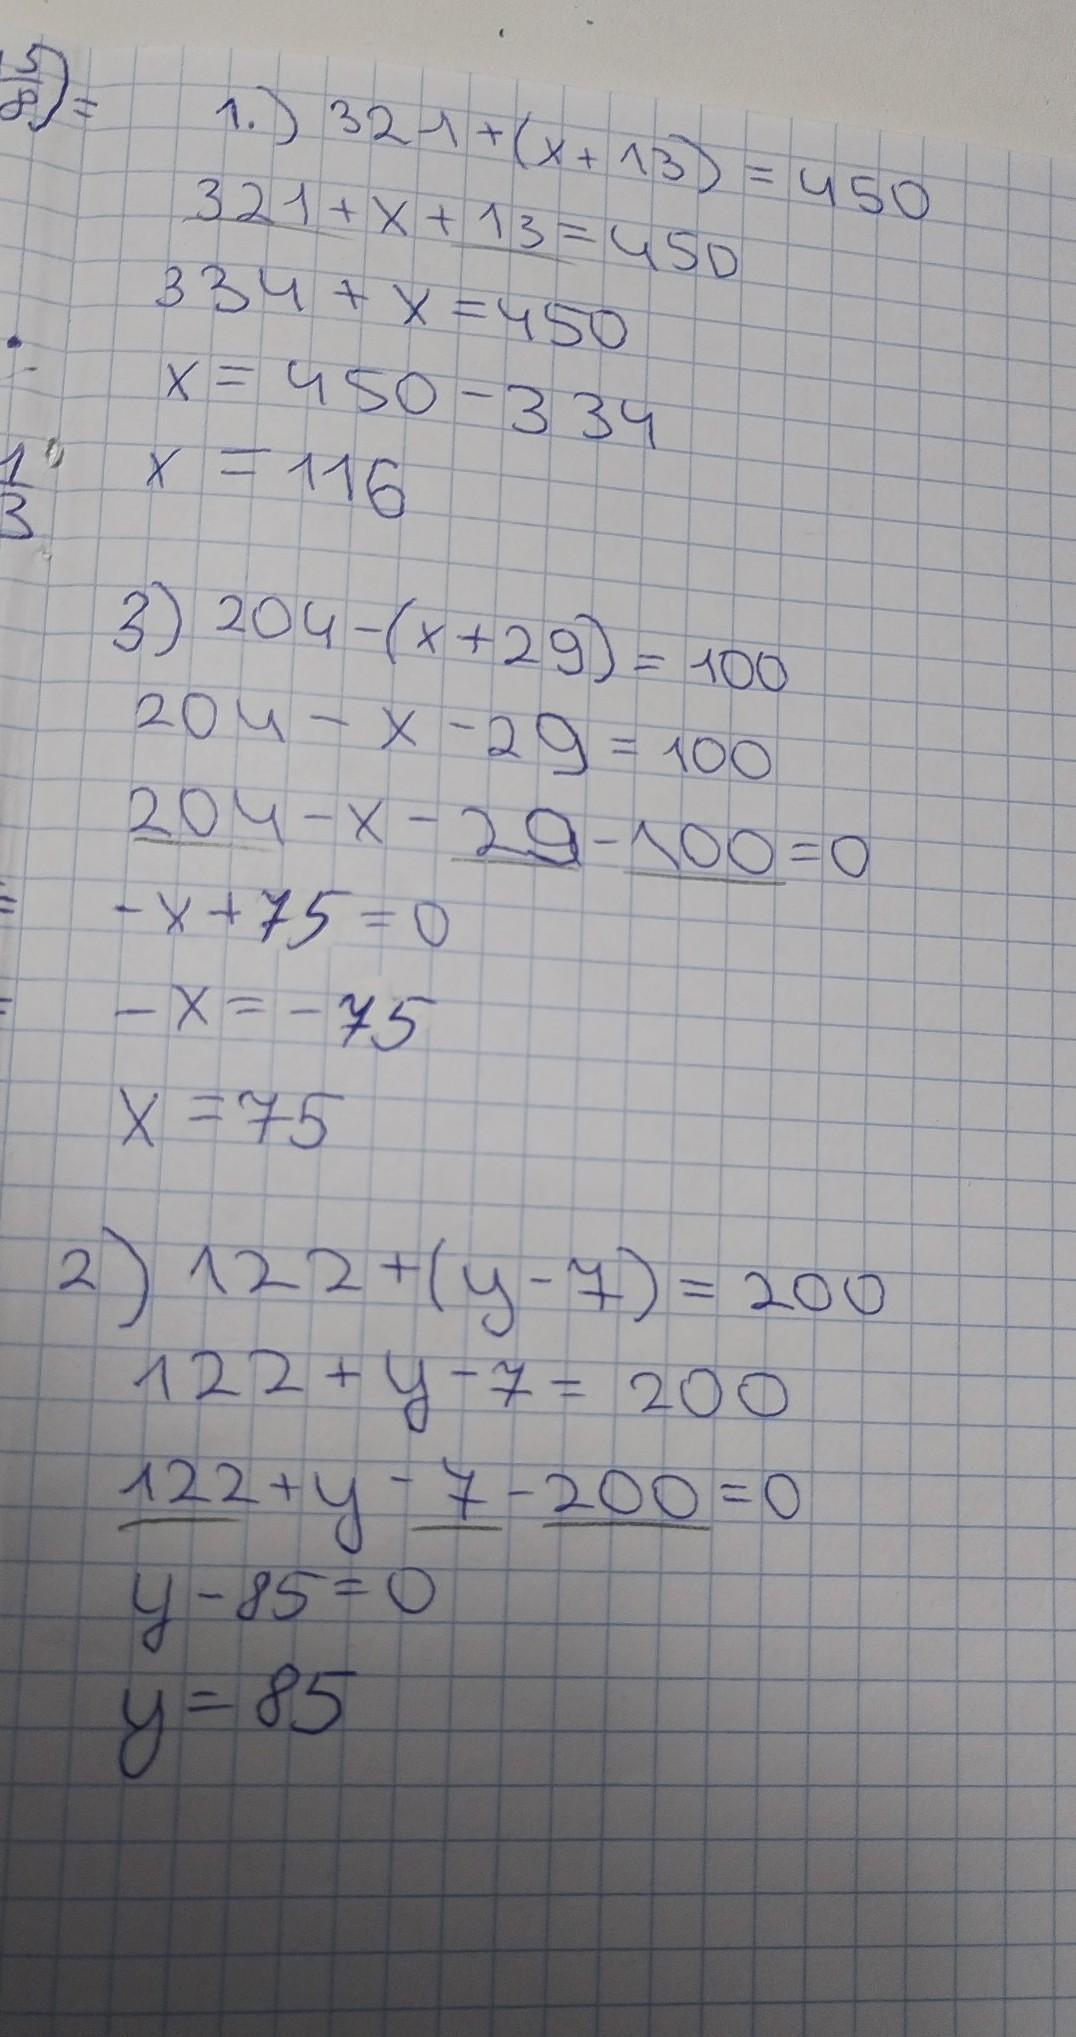 5/8) =
1.) 321+(x+13)=450
321+x+13=450
334+x=450
x=450-334
1/3
x=116
3) 204-(x+29)=100
204-x-29=100
204-x-29-100=0
=
-x+75=0
=
-x=-75
x=75
2) 122+(y-7)=200
122+y-7=200
122+y-7-200=0
y-85=0
y=85